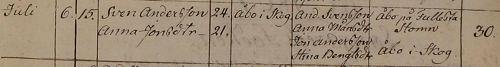 Juli 6. 15. Sven Andersson 24. Åbo i Skog And. Svensson Åbo på Jullösta
Anna Jonsdtr 21. Anna Månsdtr Stomn 30.
Jon Andersson
Stina Bengtsdtr Åbo i Skog